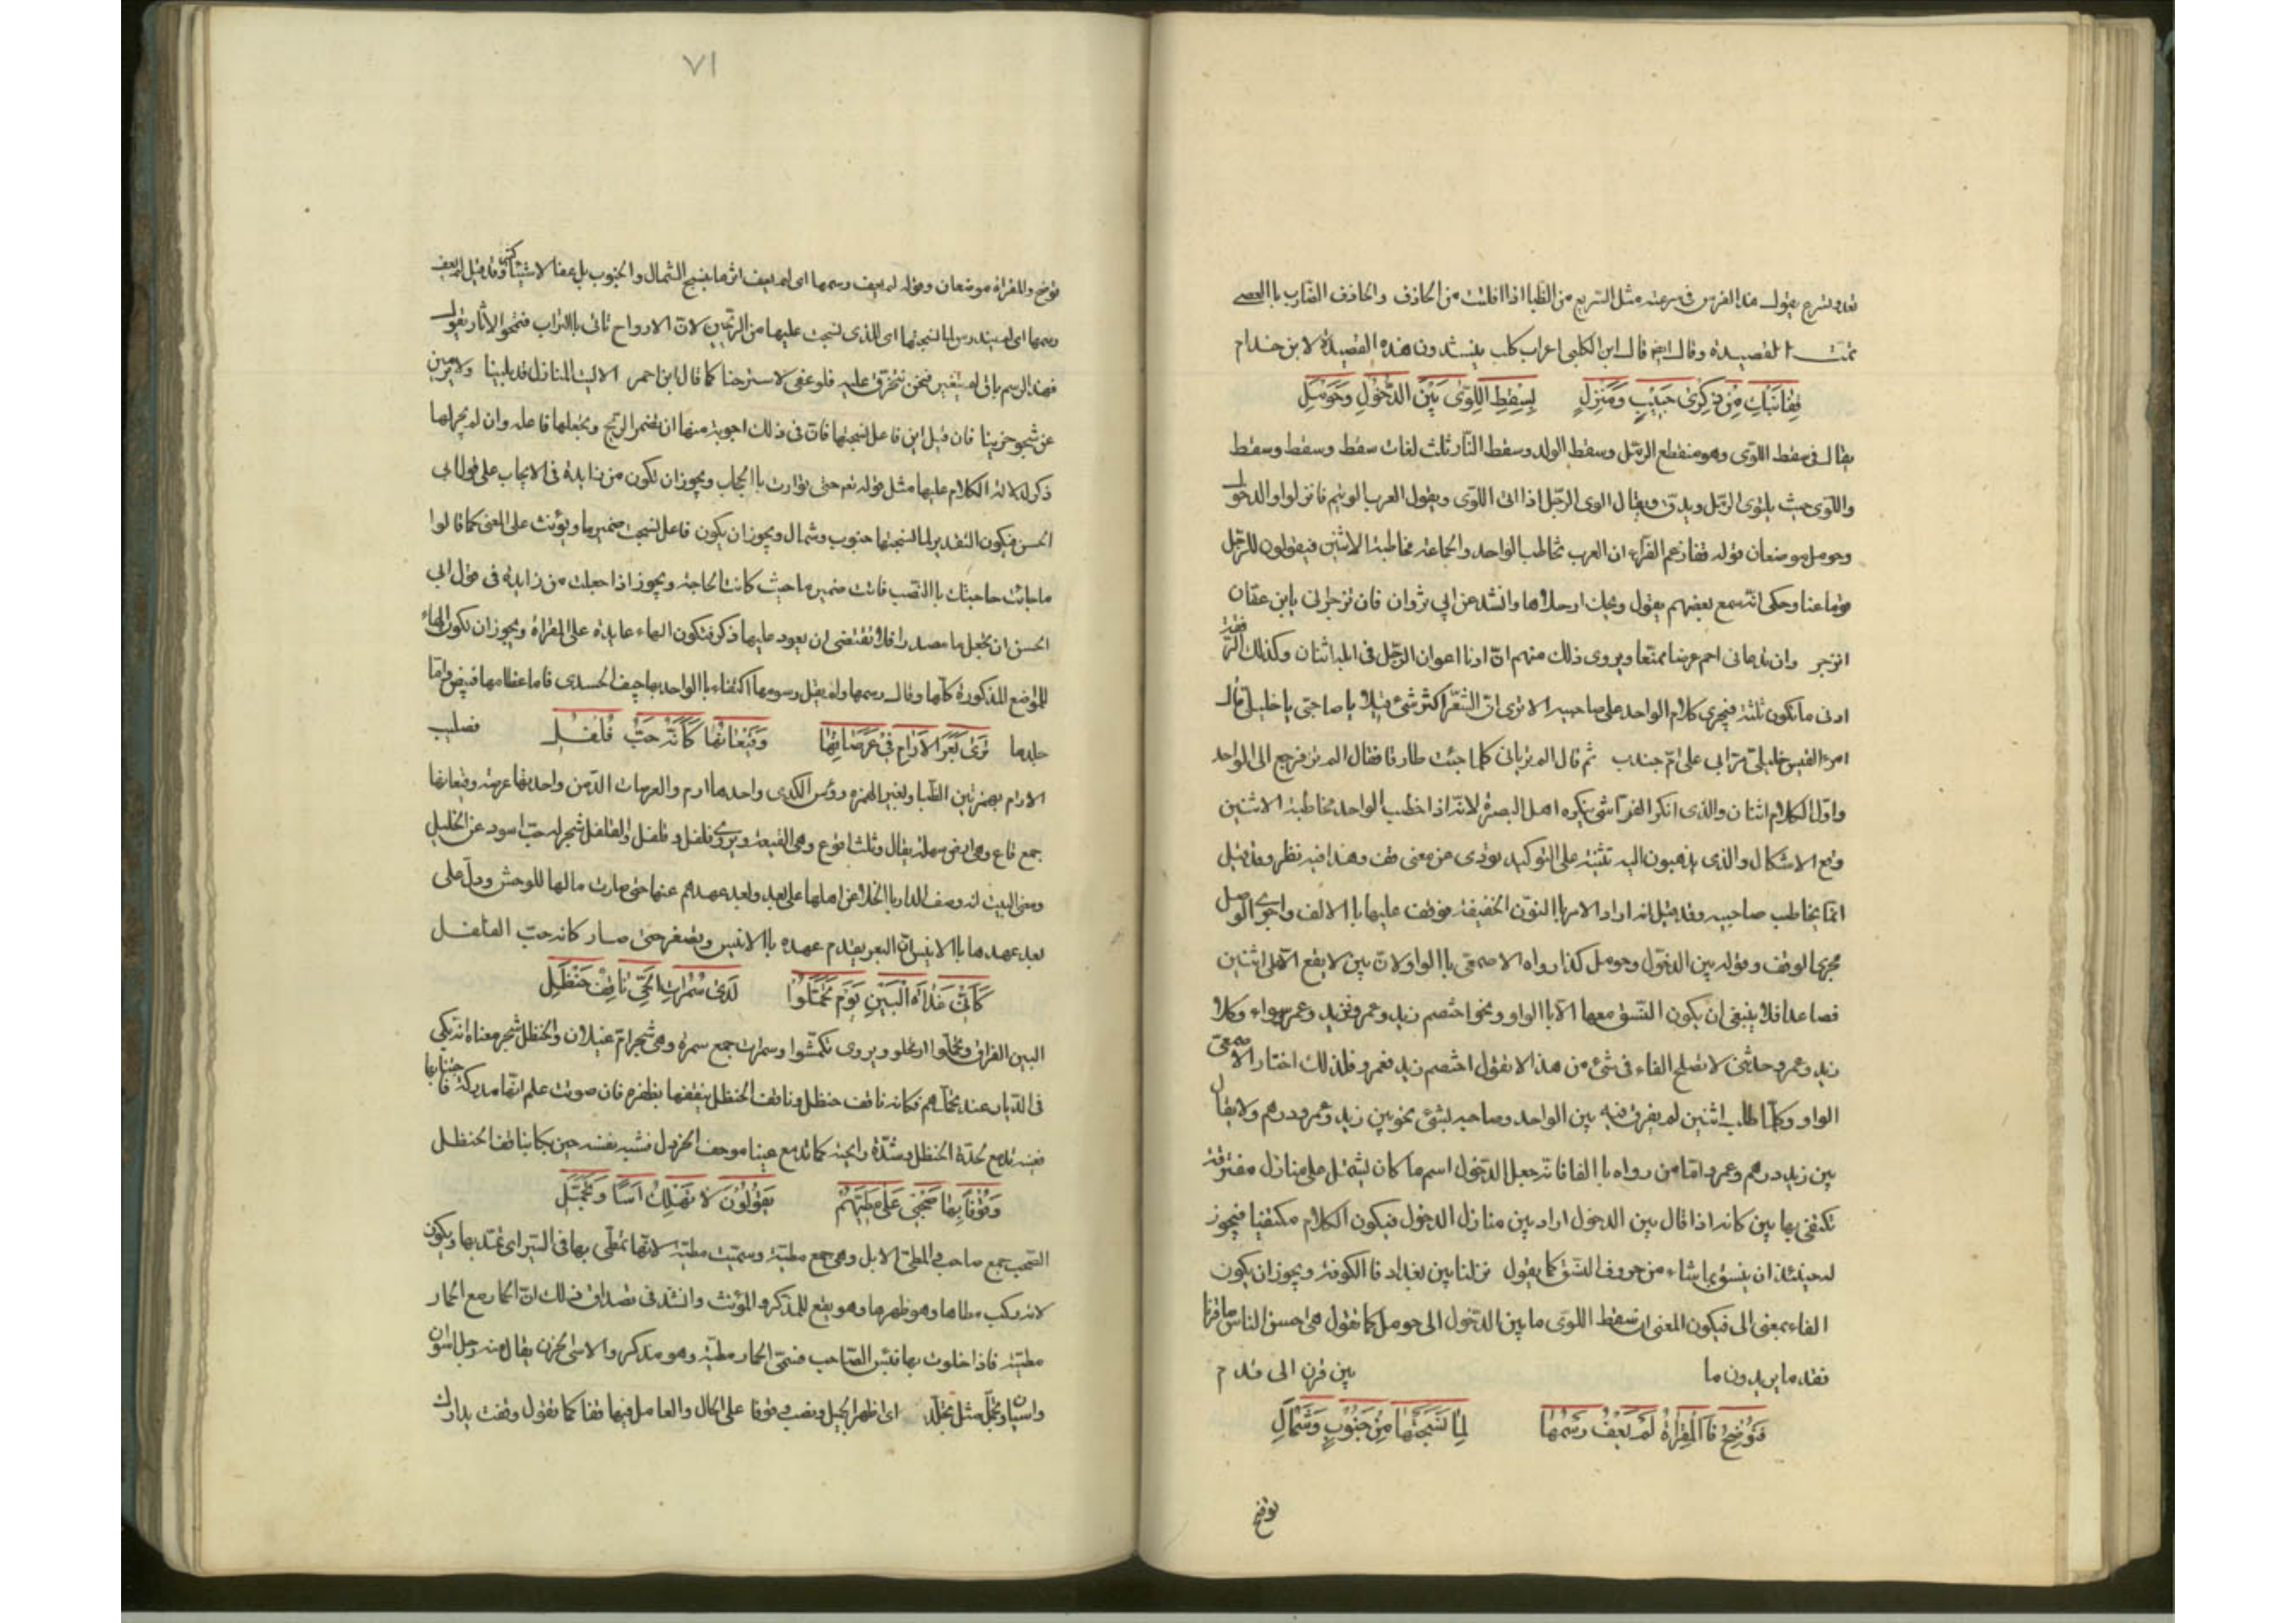 تعدو تشرح يقول هذا الفرس في سرعته مثل السريع من الظبا اذا افلت من الحاذف والحاذف الضارب باالعصي
تمت القصيدة وقال ايض قال ابن الكلبي اعراب كلب ينشدون هذه القصيدة لابن خذام
قِفَا نَبْكِ مِنْ ذِكْرىٰ حَبِيْبٍ وَمَنْزِلٍ لِسِقْطِ اللِّوَىٰ بَيْنَ الدَّخُوْلِ وَحَوْمَلِ
يقال في سقط اللوى وهو منقطع الرمل وسقط الولد وسقط النار ثلث لغات سقط وسقط وسقط
واللوى حيث يلتوى الرمل ويدق ويقال الوى الرجل اذا اتى اللوى ويقول العرب الويتم فانزلوا والدخول
وحومل موضعان قوله قفا زعم الفراء ان العرب تخاطب الواحد والجماعة مخاطبة الاثنين فيقولون للرجل
قوما عنا وحكى انه سمع بعضهم يقول ويحك ارحلاها وانشد عن ابي ثروان فان تزجراني يابن عفان
انزجر وان تدعاني احم عرضا ممنعا ويروى ذلك منهم ان ادنا اعوان الرجل في المبا اثنان وكذلك الرفقة
ادنى ما تكون ثلثة فيجري كلام الواحد على صاحبيه الا ترى ان الشعرا اكثر شئ قيلا يا صاحبى يا خليلى قال
امرء القيس خليلى مرا بي على ام جندب ثم قال الم ترياني كلما جئت طارقا فقال الم تر فرجع الى الواحد
واول الكلام اثنان والذى انكر الفرا شئ ينكره اهل البصرة لانه اذا خطب الواحد مخاطبة الاثنين
وقع الاشكال والذى يذهبون اليه تثنية على التوكيد يؤدى عن معنى قف وهذا فيه نظر وقد قيل
انما يخاطب صاحبيه وقد قيل انه اراد الامر باالنون الخفيفة فوقف عليها باالالف واجرى الوصل
مجرى الوقف وقوله بين الدخول وحومل كذا رواه الاصمعي باالواو لان بين لا يقع الا على اثنين
فصاعدا فلا ينبغى ان يكون النسق معها الا باالواو ونحو اختصم زيد وعمرو وزيد وعمر سواء وكلا
زيد وعمرو حدثنى لا تصلح الفاء في شئ من هذا لا تقول اختصم زيد فعمرو فلذلك اختار الاصمعى
الواو وكلما طلب اثنين لم يفرق فيه بين الواحد وصاحبه لشئ نحو بين زيد وعمرو درهم ولا يقال
بين زيد درهم وعمرو واما من رواه باالفا فانه جعل الدخول اسم ما كان يشتمل على منازل مفترقة
تكتفى بها بين كانه اذا قال بين الدخول اراد بين منازل الدخول فيكون الكلام مكتفيا فيجوز
له حينئذ ان ينسق بما شاء من حروف النسق كما يقول نزلنا بين بغداد فاالكوفة ويجوز ان يكون
الفاء بمعنى الى فيكون المعنى ان سقط اللوى ما بين الدخول الى حومل كما تقول هى احسن الناس ما قرنا
فقدما يريدون ما بين قرن الى قدم
فَتُوْضِحَ فَاالْمِقْرَاةُ لَمْ يَعْفُ رَسْمُهَا لِمَا نَسَجَتْهَا مِنْ جَنُوْبٍ وَشَمْأَلِ
توضح
٧١
توضح والمقراة موضعان وقوله لم يعف رسمها اى لم يعف اثرها بنسج الشمال والجنوب بل عفا لاشياء كثيرة وقد قيل لم يعف
رسمها اى لم يندرس لما نسجتها اى للذى نسجت عليها من الريحين لان الارواح تاتى باالتراب فتمحو الآثار يقول
فهذا الرسم باق لم يتغير فنحن نتحرق عليه فلو عفى لاسترحنا كما قال ابن احمر الاليت المنازل قد بلينا ولا يرمين
عن شجو حزينا فان قيل اين فاعل نسجتها فان في ذلك اجوبة منها ان تضمر الريح وتجعلها فاعله وان لم يجر لها
ذكر لدلالة الكلام عليها مثل قوله تع حتى توارت باالحجاب ويجوز ان تكون من زايدة في الايجاب على قول ابى
الحسن فيكون التقدير لما نسجتها جنوب وشمال ويجوز ان يكون فاعل نسجت ضمير ما ويؤنث على المعنى كما قالوا
ما جائت حاجتك باالنصب فانث ضمير ما حيث كانت الحاجة ويجوز اذا جعلت من زايدة في قول ابي
الحسن ان تجعل ما مصدرا فلا تقتضى ان يعود عليها ذكر فتكون الهاء عايدة على المقراة ويجوز ان تكون الهاء
للمواضع المذكورة كلها وقال رسمها ولم يقل رسومها اكتفاء باالواحد بها جيف الحسرى فاما عظامها فبيض واما
جلدها فصليب تَرَى بَعَرَ الْآرَامِ فِيْ عَرَصَاتِهَا وَقِيْعَانِهَا كَاَنَّهُ حَبُّ فُلْفُلِ
الارام بهمزتين الظبا وبغير الهمزه رؤس الكدى واحدها ارم والعرصات الدمن واحدتها عرصة وقيعانها
جمع قاع وهى ارض سهلة يقال وثلث اقوع وهى القيعة ويروى قلقل وفلفل والفلفل شجر له حب اسود عن الخليل
ومعنى البيت انه وصف الدار باالخلا عن اهلها على بعد وبعد عهدهم عنها حتى صارت مالها للوحش ودل على
بعد عهدها باالانيس ان البعر يقدم عهده باالانيس ويصغر حتى صار كانه حب الفلفل
كَاَنِّىْ غَدَاةَ الْبَيْنِ يَوْمَ تَحَمَّلُوْا لَدَىٰ سَمُرَاتِ الْحَىِّ نَاقِفُ حَنْظَلِ
البين الفراق وتحملوا ارتحلو ويروى تكمشوا وسمرات جمع سمرة وهى شجر ام غيلان والحنظل شجر معناه انه بكى
في الديار عند تحملهم فكانه ناقف حنظل وناقف الحنظل ينقفها بظفره فان صوتت علم انها مدركة فاجتناها
فعينه تدمع لحدة الحنظل وشدة رايحته كما تدمع عينا موحف الخردل فشبه نفسه حين بكا بناقف الحنظل
وَقُوْفًا بِهَا صَحْبِيْ عَلَىَّ مَطِيَّهُمْ يَقُوْلُوْنَ لَا تَهْلِكْ اَسًا وَتَحَمَّلِ
الصحب جمع صاحب والمطى الابل وهى جمع مطية وسميت مطية لانها تمطى بها في السير اى تمتد بها ويكون
لانه يركب مطاها وهو ظهرها وهو يقع للمذكر والمؤنث وانشد في تصداق ذلك ان الحمار مع الحمار
مطية فاذا خلوت بها فبئس الصاحب فسمى الحمار مطية وهو مذكر والاسى الحزن يقال منه رجل اسوان
واسيان وتحمل مثل تجلد اى اظهر الجميل ونصب وقوفا على الحال والعامل فيها قفا كما تقول وقفت بدارك